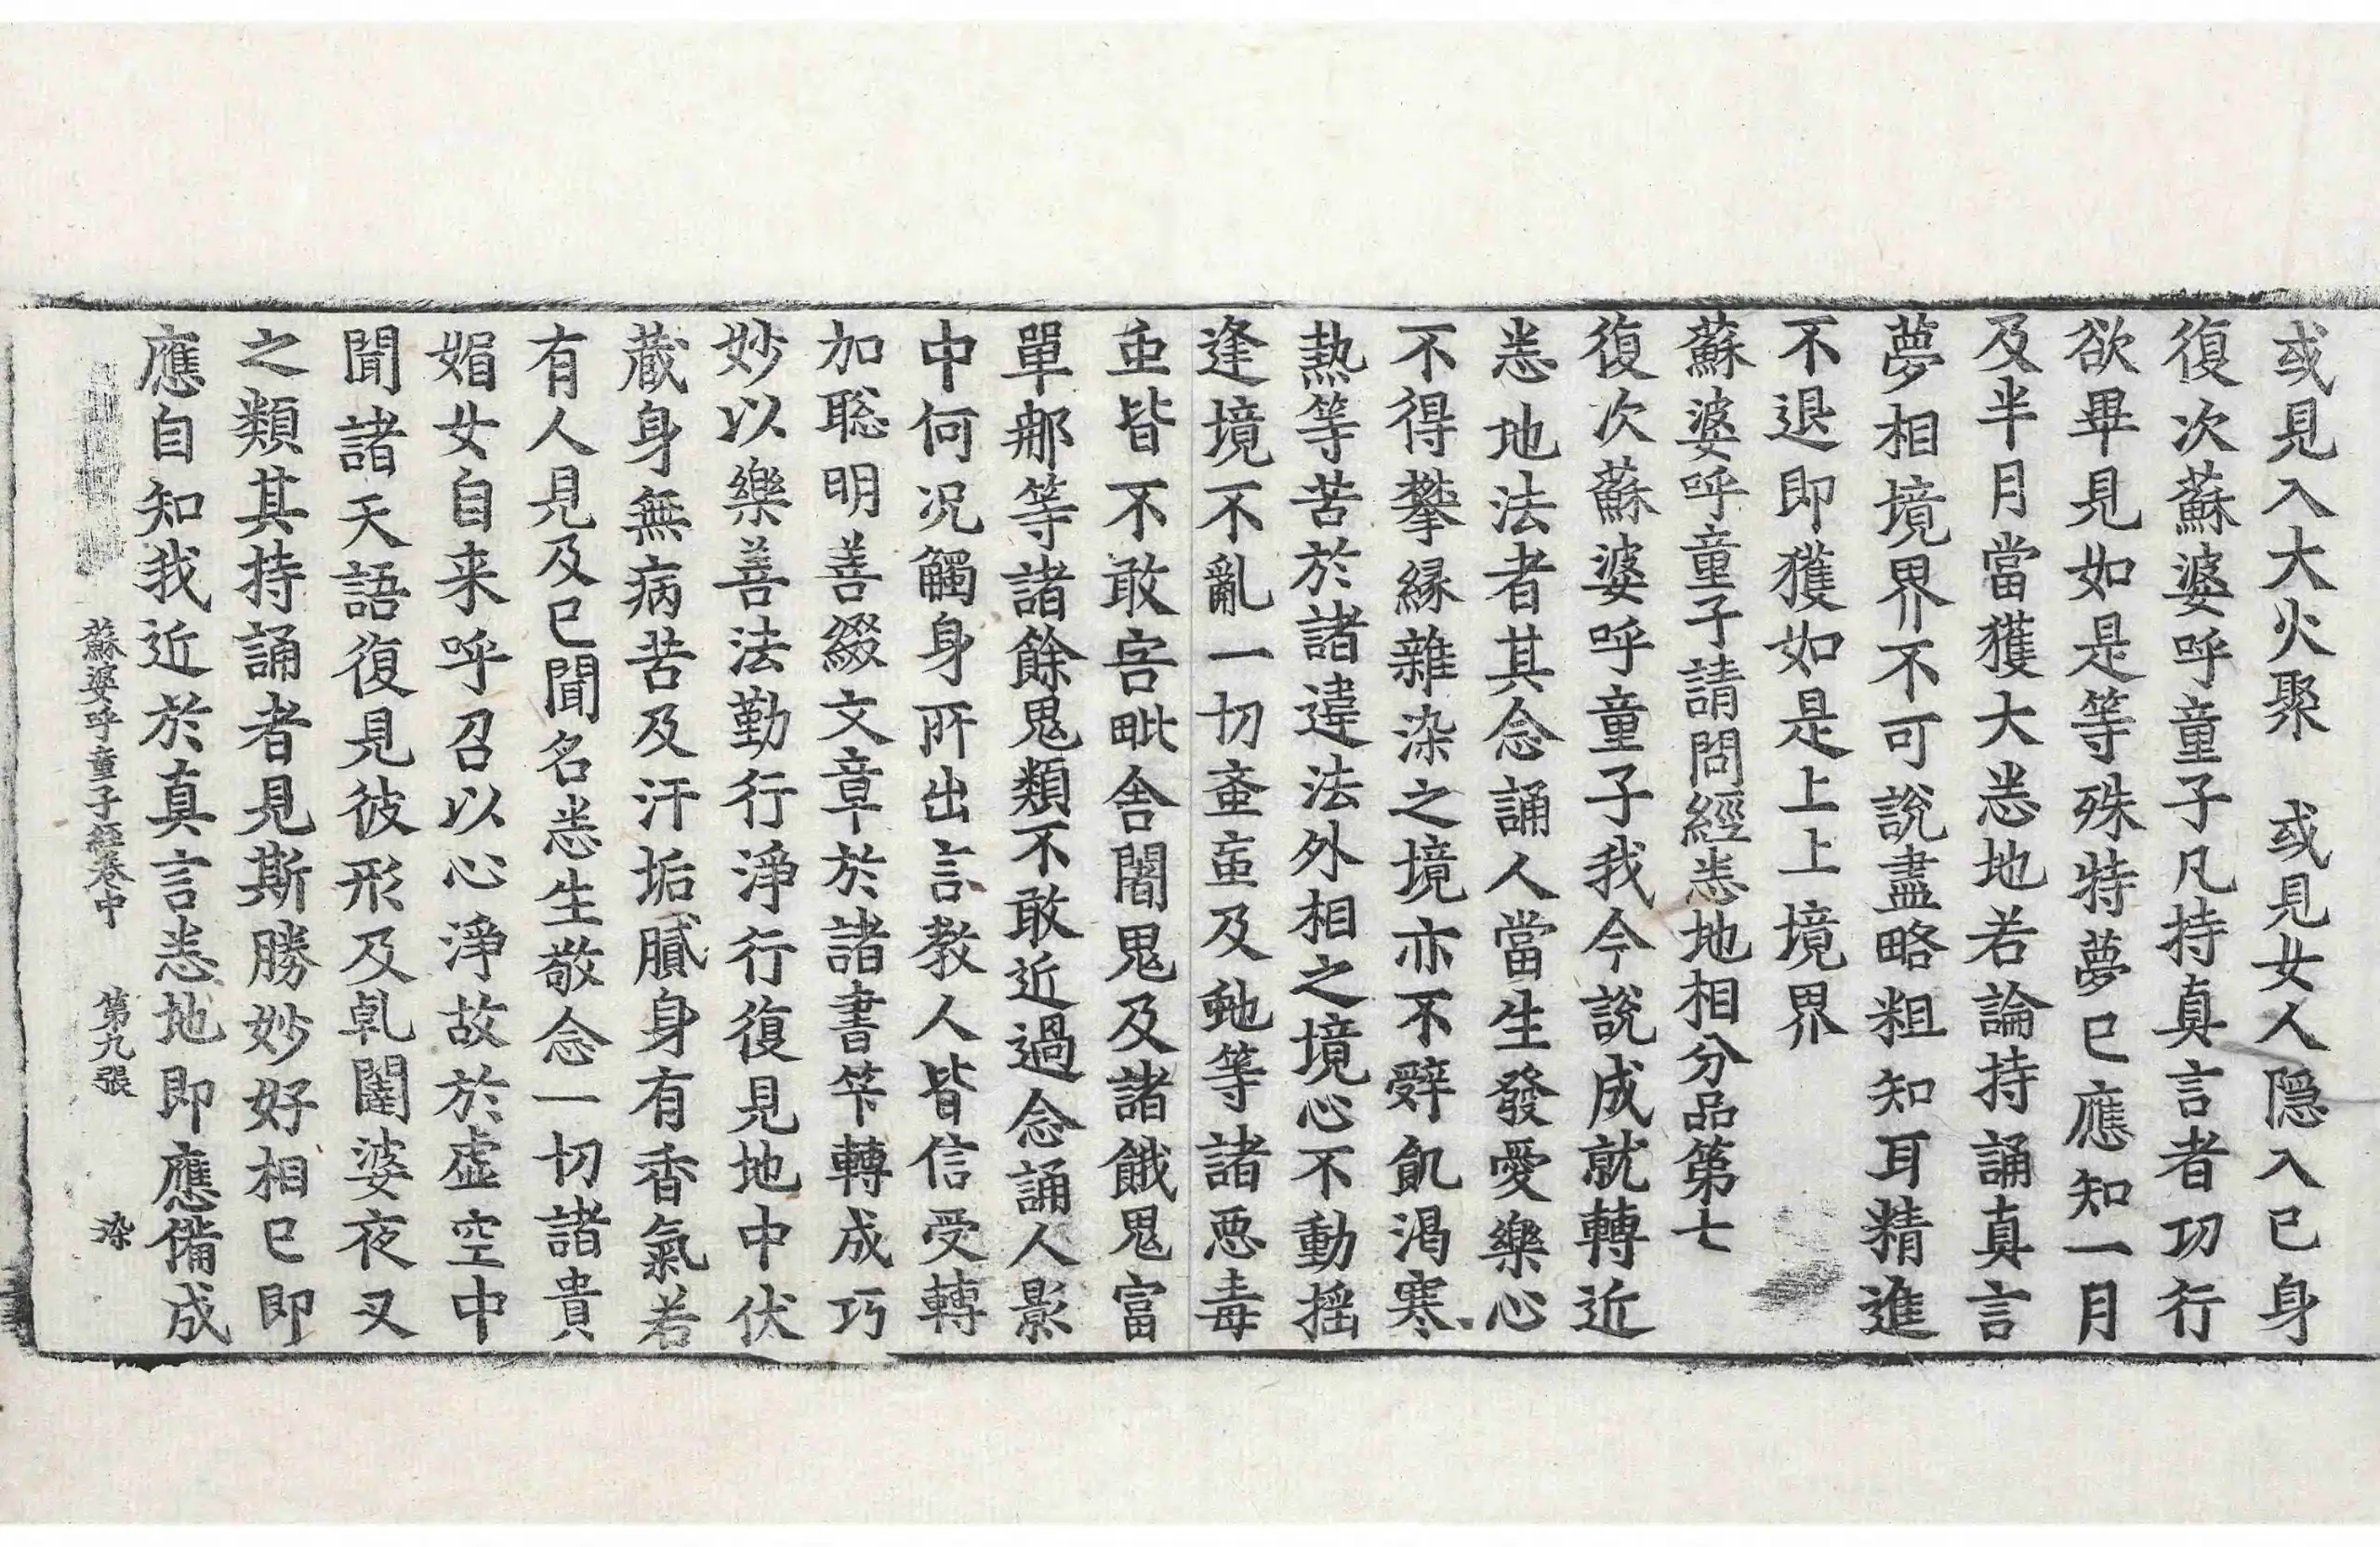 或見入大火聚　或見女人隠入已身
復次蘇婆呼童子凡持真言者功行
欲畢見如是等殊特夢已應知一月
及半月當獲大悉地若論持誦真言
夢相境界不可說盡略粗知耳精進
不退即獲如是上上境界
蘇婆呼童子請問經悉地相分品第七
復次蘇婆呼童子我今說成就轉近
悉地法者其念誦人當生發愛樂心
不得攀緣雜染之境亦不辭飢渴寒
熱等苦於諸違法外相之境心不動揺
逢境不亂一切蚉䖟及虵等諸惡毒
䖝皆不敢害毗舍闍鬼及諸餓鬼富
單那等諸餘鬼類不敢近過念誦人影
中何况觸身所出言教人皆信受轉
加聡明善綴文章於諸書筭轉成巧
妙以樂善法勤行淨行復見地中伏
蔵身無病苦及汗垢膩身有香氣若
有人見及已聞名悉生敬念一切諸貴
媚女自来呼召以心淨故於虚空中
聞諸天語復見彼形及乹闥婆夜叉
之類其持誦者見斯勝妙好相已即
應自知我近於真言悉地即應備成
蘇婆呼童子經卷中　第九張　染